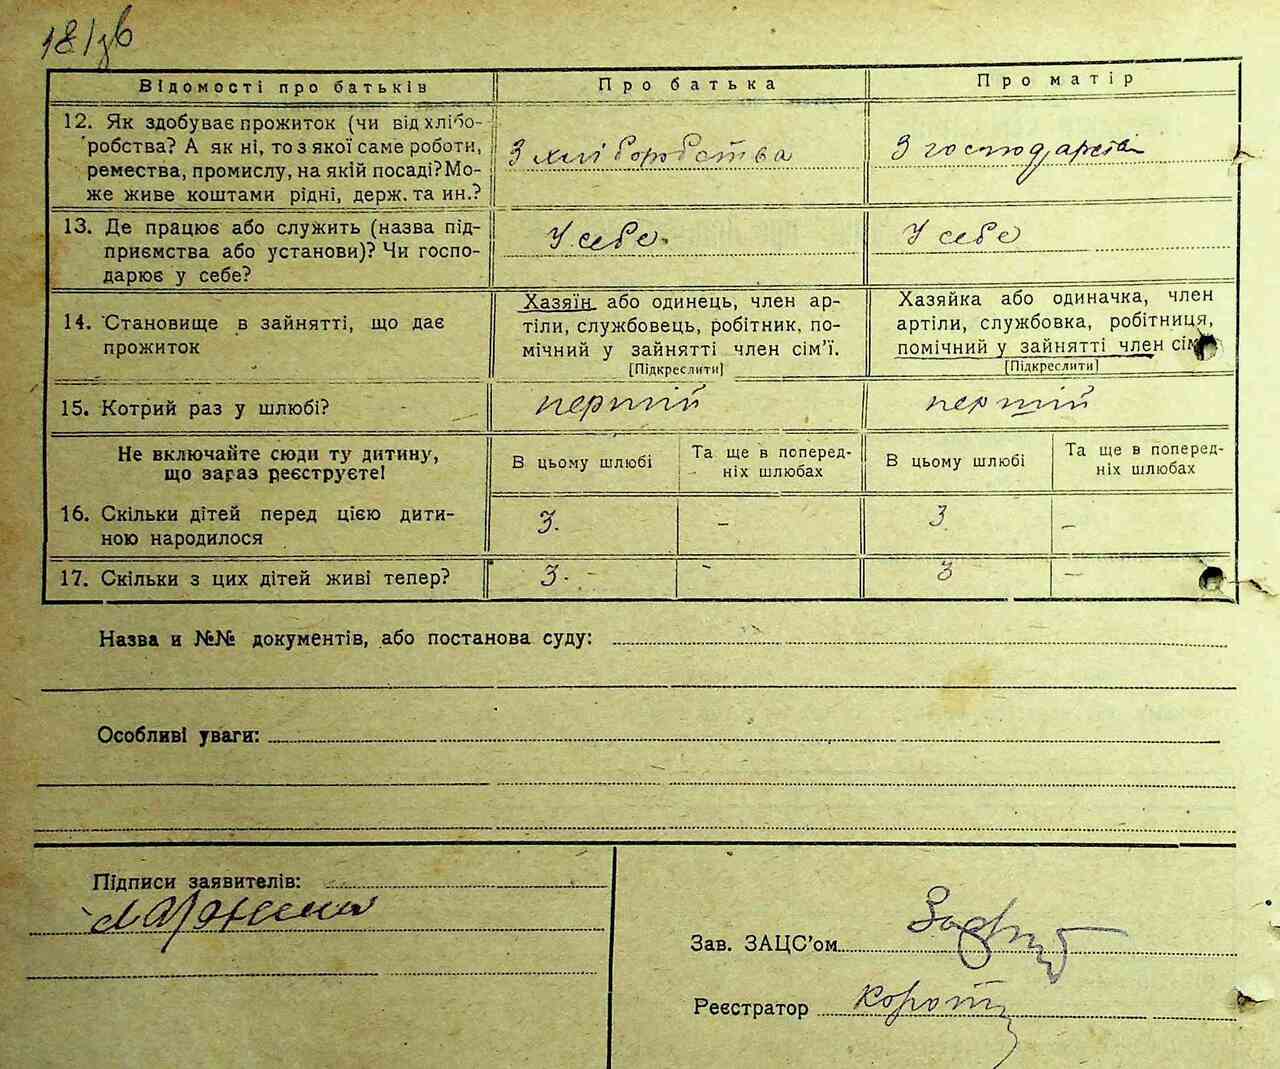 18/зв
Відомості про батьків
Про батька
Про матір
12. Як здобуває прожиток (чи від хлібо-
робства? А як ні, то з якої саме роботи,
ремества, промислу, на якій посаді? Мо-
же живе коштами рідні, держ. та ин.?
З хліборобства
З господарства
13. Де працює або служить (назва під-
приємства або установи)? Чи госпо-
дарює у себе?
У себе
У себе
14. Становище в зайнятті, що дає
прожиток
Хазяїн або одинець, член ар-
тіли, службовець, робітник, по-
мічний у зайнятті член сім'ї.
[Підкреслити]
Хазяйка або одиначка, член
артіли, службовка, робітниця,
помічний у зайнятті член сім
[Підкреслити]
15. Котрий раз у шлюбі?
перший
перший
Не включайте сюди ту дитину,
що зараз реєструєте!
В цьому шлюбі
Та ще в поперед-
ніх шлюбах
В цьому шлюбі
Та ще в поперед-
ніх шлюбах
16. Скільки дітей перед цією дити-
ною народилося
3.
-
3
-
17. Скільки з цих дітей живі тепер?
3.
-
3
-
Назва и №№ документів, або постанова суду:
Особливі уваги:
Підписи заявителів:
Зав. ЗАЦС'ом
Реєстратор